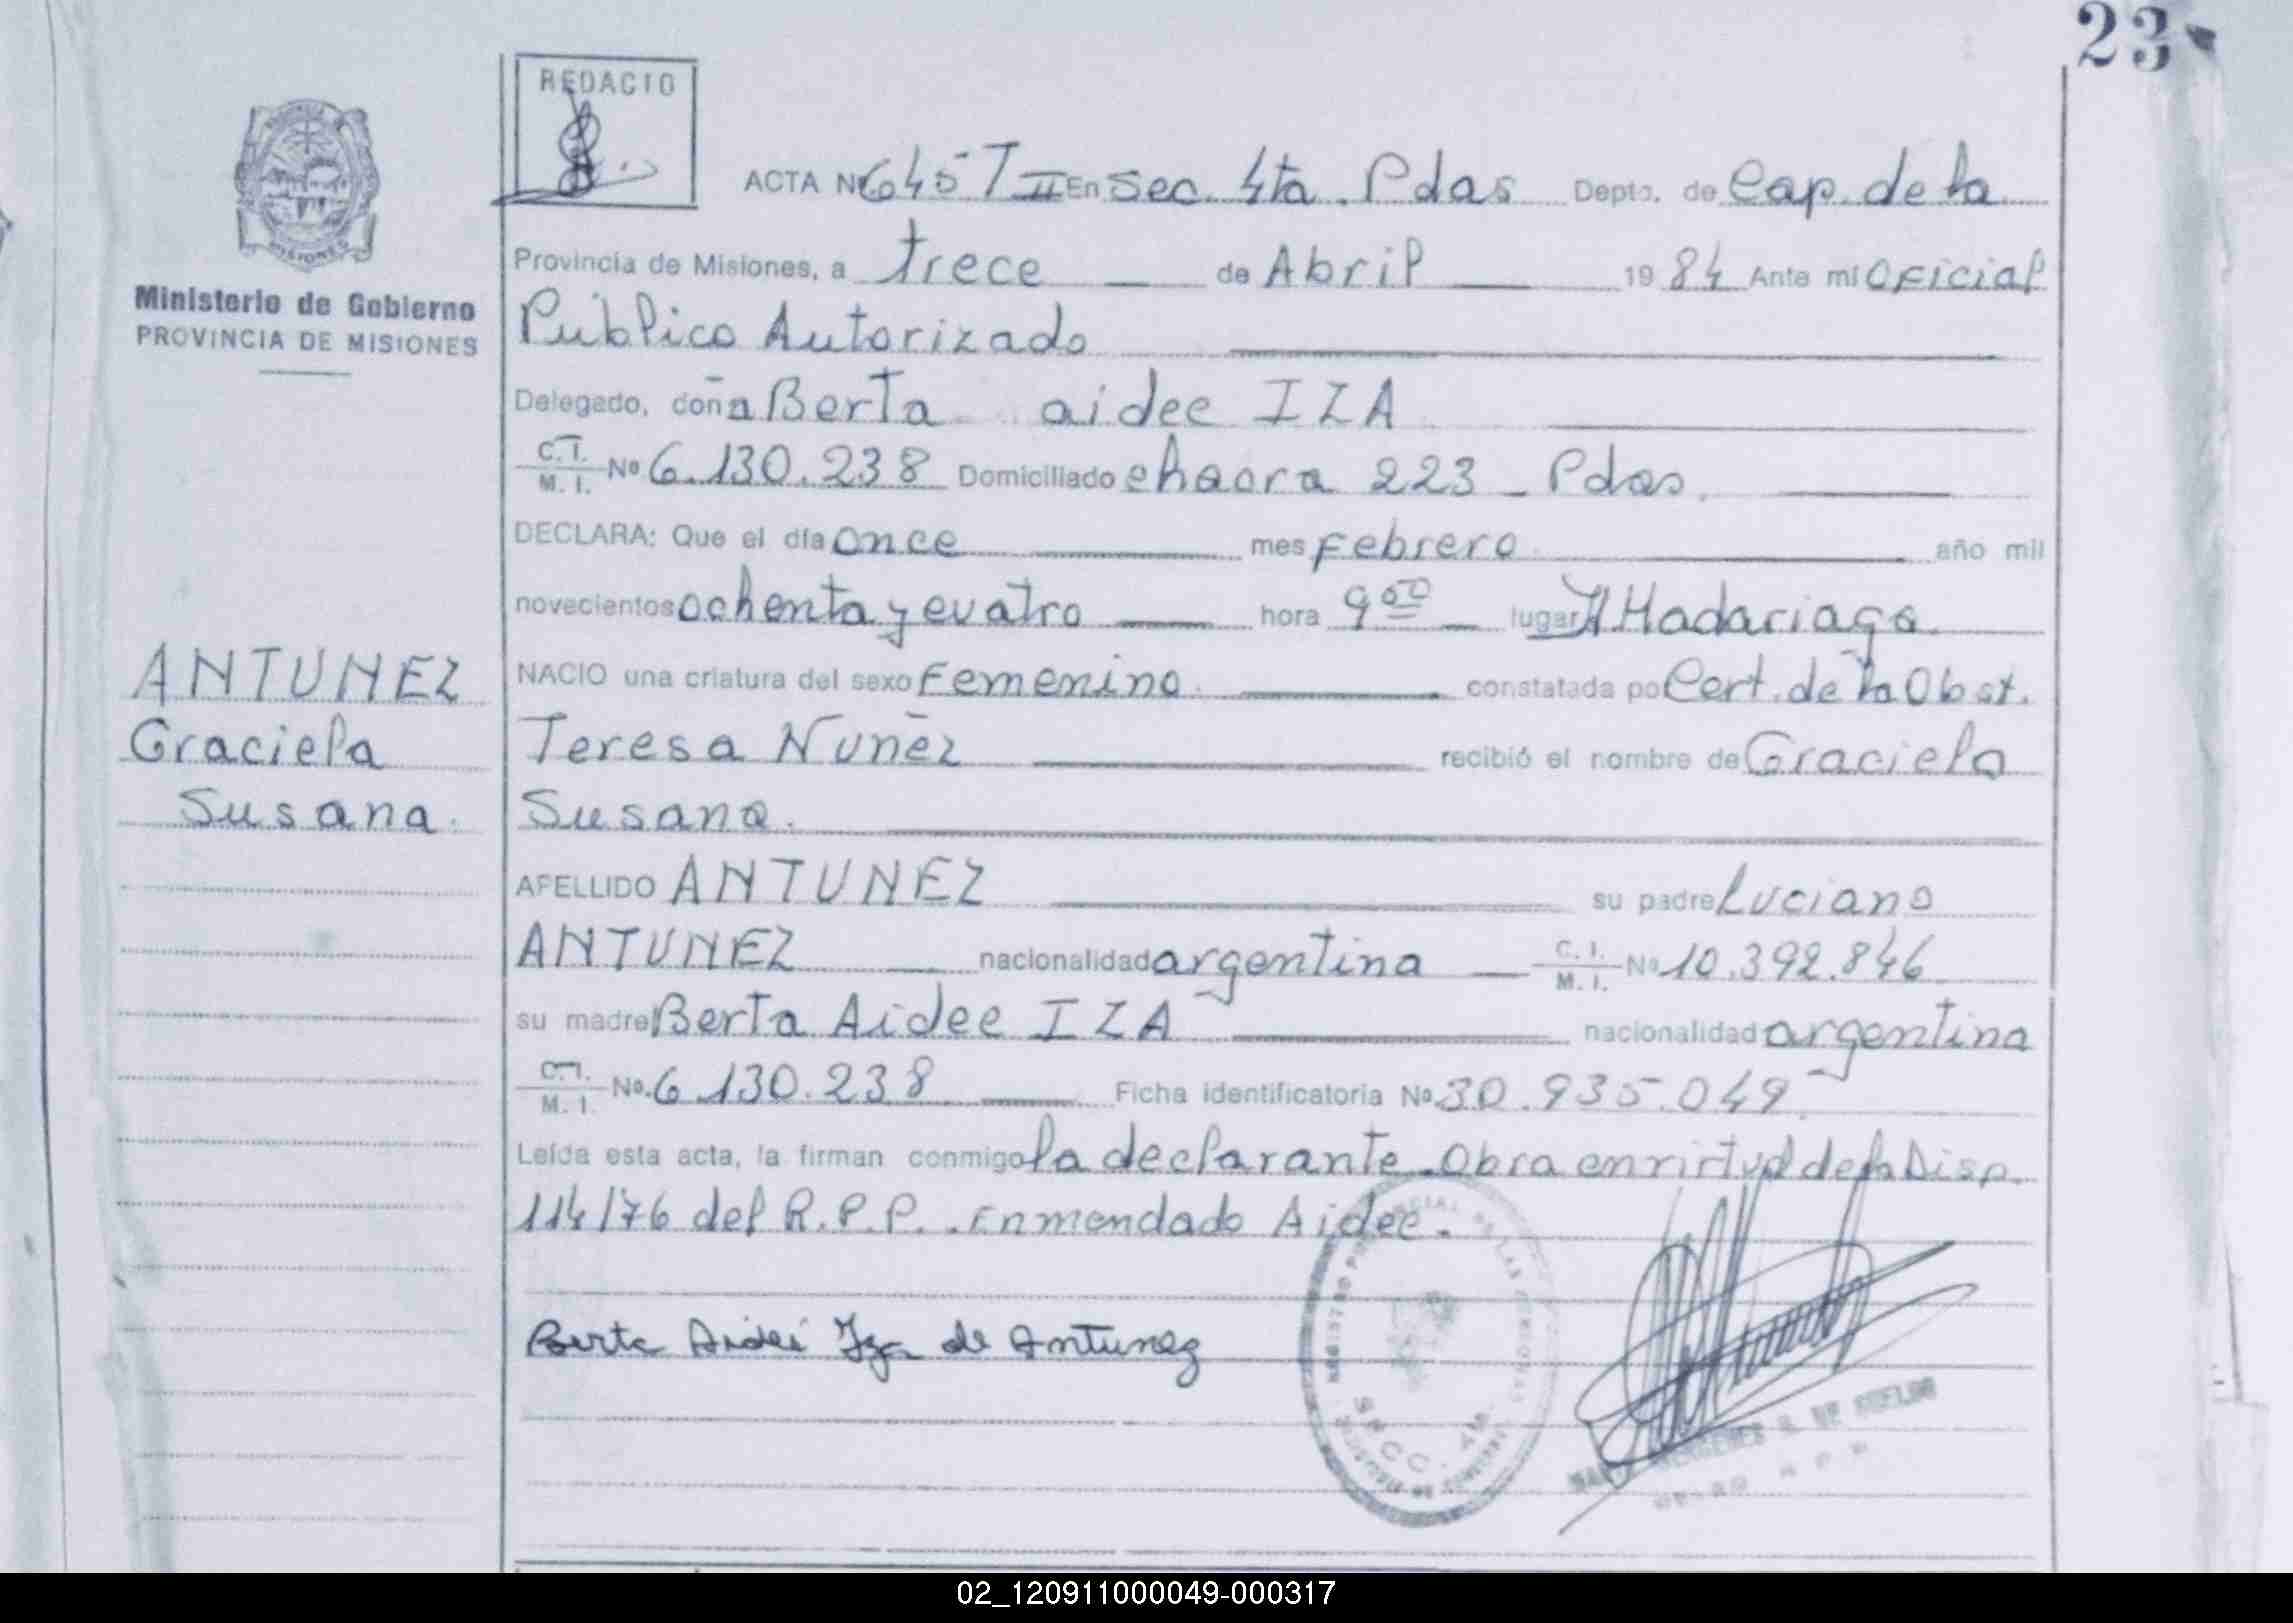 23
REDACTO
ACTA Nº 645 T II En Sec. 4ta. Pdas Depto. de Cap. de la
Provincia de Misiones, a trece de Abril 1984 Ante mi Oficial
Publico Autorizado
Delegado, doña Berta aidee IZA
C.I. M.I. Nº 6.130.238 Domiciliado chacra 223 - Pdas.
DECLARA: Que el día once mes Febrero año mil
novecientos ochenta y cuatro hora 9 00 lugar H Madariaga
NACIO una criatura del sexo Femenino constatada po Cert. de la Obst.
Teresa Nuñez recibió el nombre de Graciela
Susana.
APELLIDO ANTUNEZ su padre Luciano
ANTUNEZ nacionalidad argentina C.I. M.I. Nº 10.392.846
su madre Berta Aidee IZA nacionalidad argentina
C.I. M.I. Nº 6.130.238 Ficha identificatoria Nº 30.935.049
Leída esta acta, la firman conmigo la declarante. Obra en virtud de la Disp.
114/76 del R.P.P.. Enmendado Aidee.
Berta Aidee Iza de Antunez
Ministerio de Gobierno
PROVINCIA DE MISIONES
ANTUNEZ
Graciela
Susana.
02_120911000049-000317